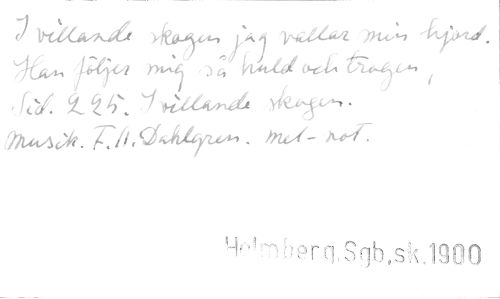 I villande skogen jag vallar min hjord.
Han följer mig så huld och trogen,
Sid. 225. I villande skogen.
Musik. F. A. Dahlgren. mel-not.
Holmberg, Sgb, sk. 1900